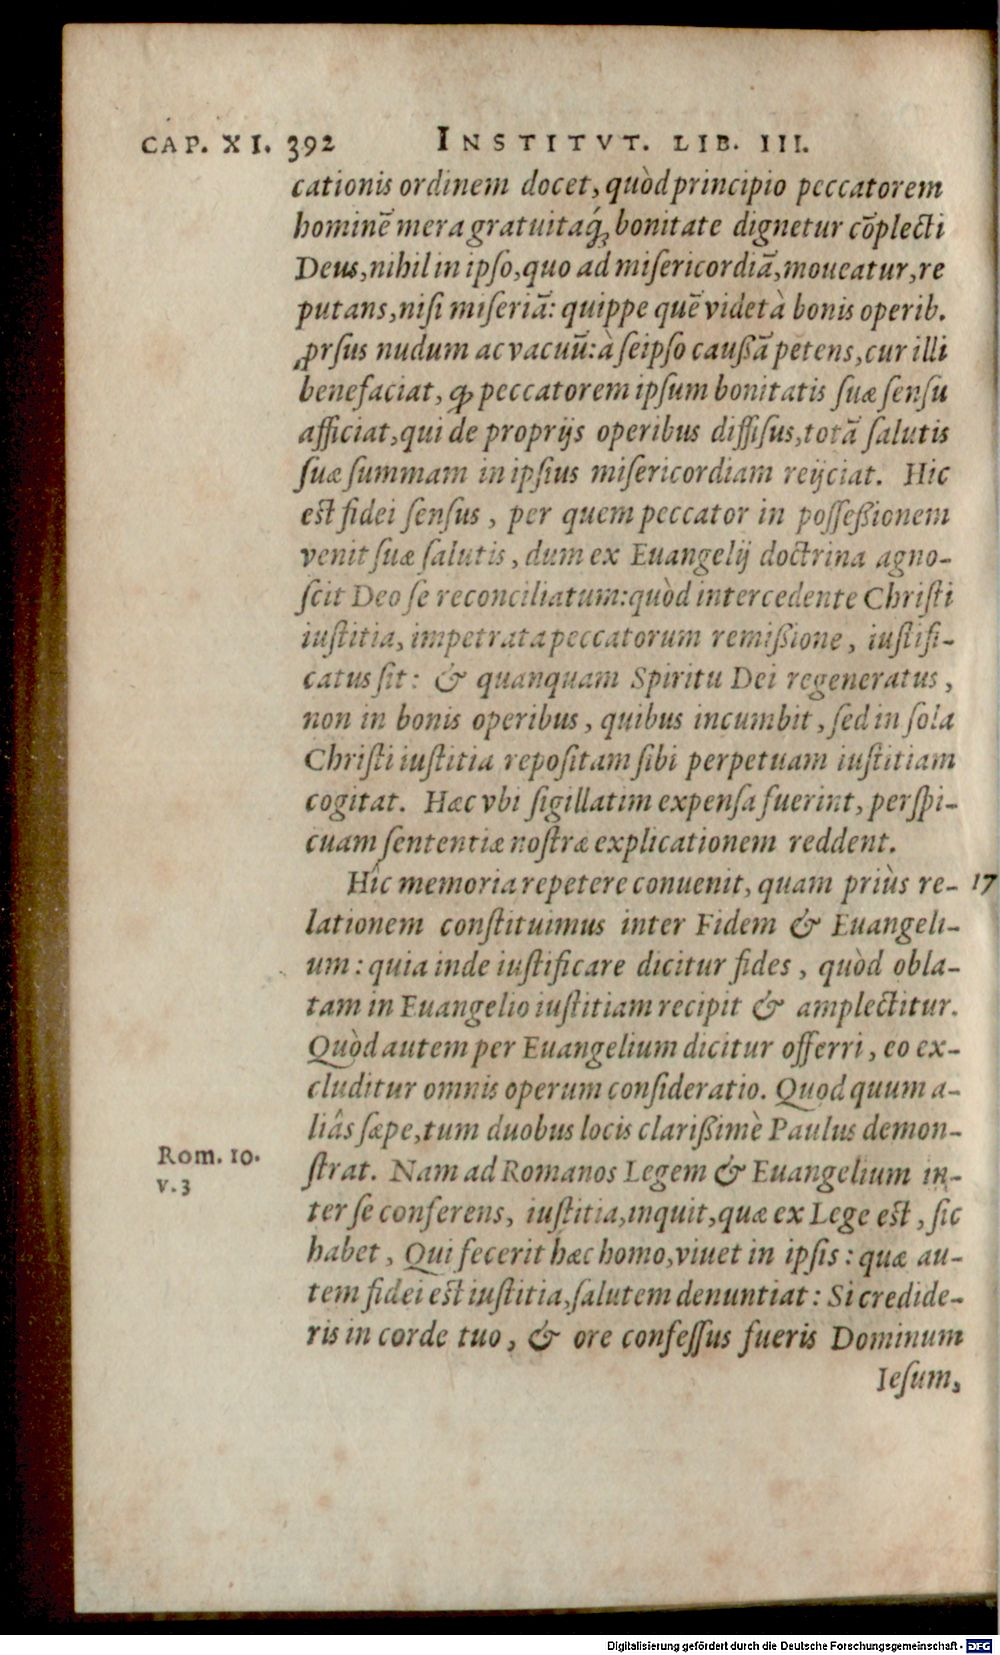 CAP. XI. 392 INSTITVT. LIB. III.
cationis ordinem docet, quòd principio peccatorem
hominẽ mera gratuitaq́; bonitate dignetur cõplecti
Deus, nihil in ipso, quo ad misericordiã, moueatur, re
putans, nisi miseriã: quippe quẽ videt à bonis operib.
ꝓrsus nudum ac vacuũ: à seipso caußã petens, cur illi
benefaciat, ꝙ peccatorem ipsum bonitatis suæ sensu
afficiat, qui de proprijs operibus diffisus, totã salutis
suæ summam in ipsius misericordiam reijciat. Hic
est fidei sensus, per quem peccator in posseßionem
venit suæ salutis, dum ex Euangelij doctrina agno-
scit Deo se reconciliatum: quòd intercedente Christi
iustitia, impetrata peccatorum remißione, iustifi-
catus sit: & quanquam Spiritu Dei regeneratus,
non in bonis operibus, quibus incumbit, sed in sola
Christi iustitia repositam sibi perpetuam iustitiam
cogitat. Hæc vbi sigillatim expensa fuerint, perspi-
cuam sententiæ nostræ explicationem reddent.
Hîc memoria repetere conuenit, quam priùs re- 17
lationem constituimus inter Fidem & Euangeli-
um: quia inde iustificare dicitur fides, quòd obla-
tam in Euangelio iustitiam recipit & amplectitur.
Quòd autem per Euangelium dicitur offerri, eo ex-
cluditur omnis operum consideratio. Quod quum a-
liâs sæpe, tum duobus locis clarißimè Paulus demon-
Rom. 10.
v. 3
strat. Nam ad Romanos Legem & Euangelium in-
ter se conferens, iustitia, inquit, quæ ex Lege est, sic
habet, Qui fecerit hæc homo, viuet in ipsis: quæ au-
tem fidei est iustitia, salutem denuntiat: Si credide-
ris in corde tuo, & ore confessus fueris Dominum
Iesum,
Digitalisierung gefördert durch die Deutsche Forschungsgemeinschaft - DFG